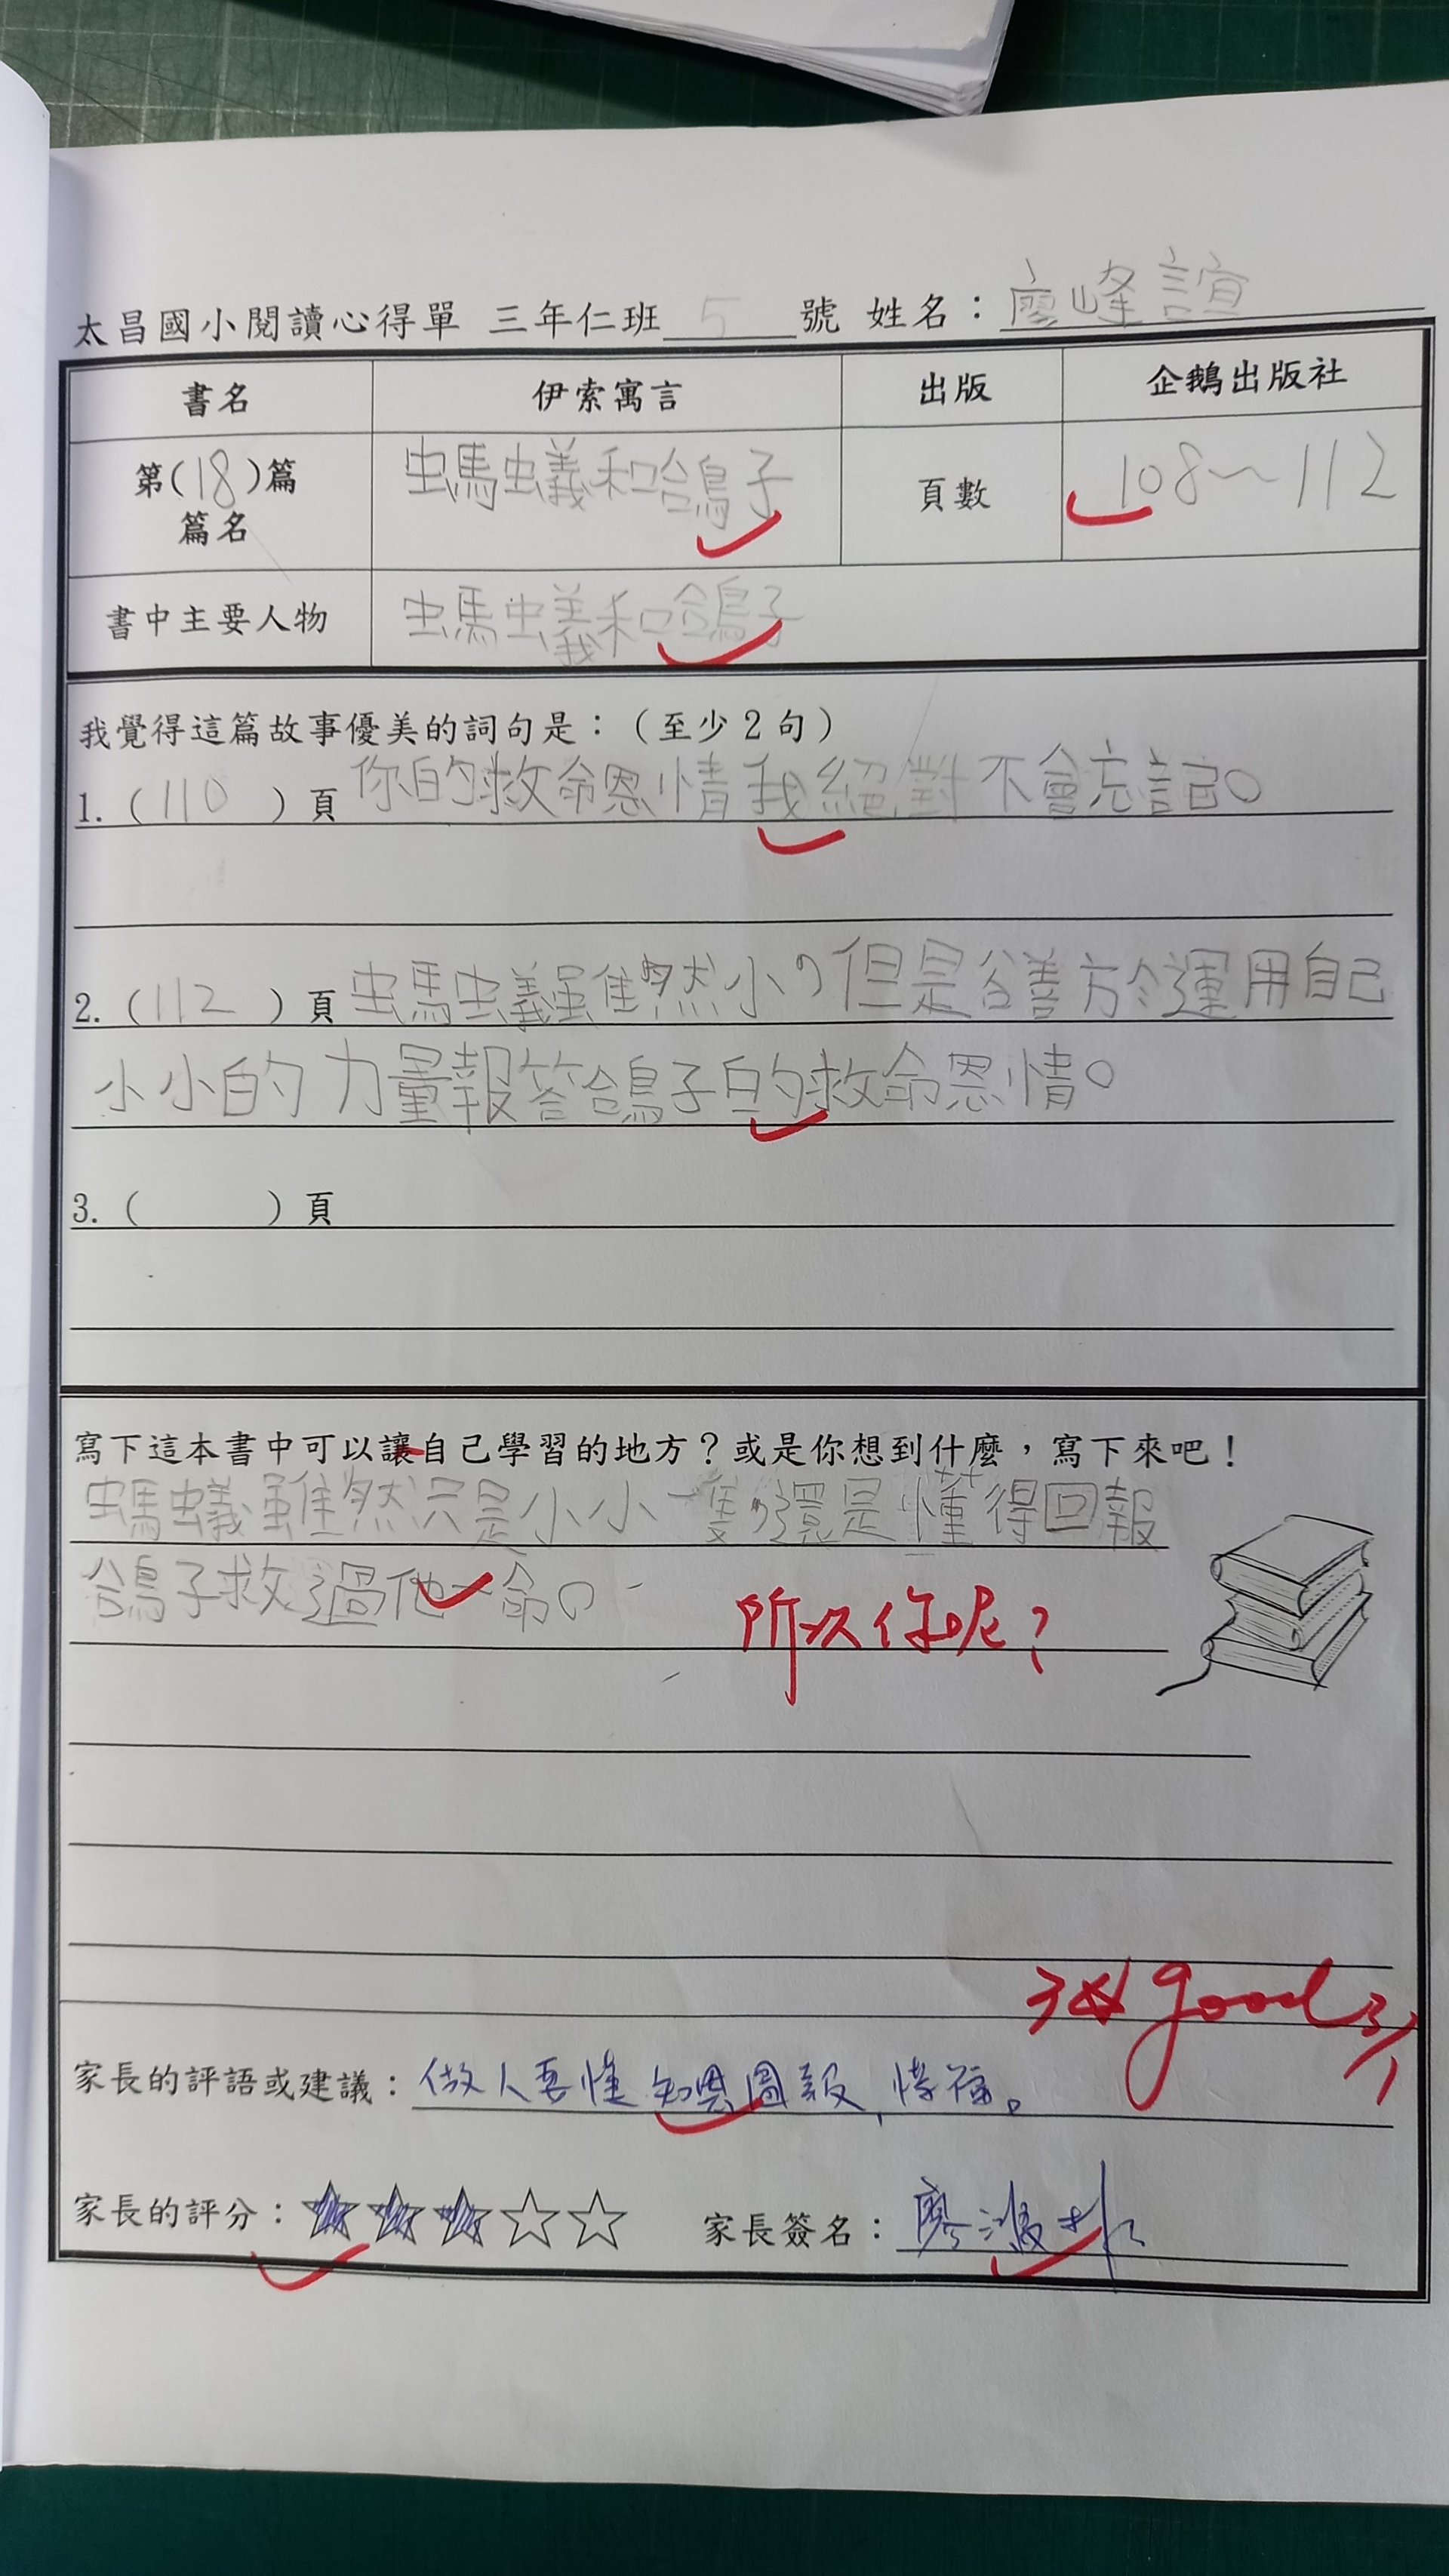 太昌國小閱讀心得單 三年仁班 5 號 姓名：廖峰誼
書名 伊索寓言 出版 企鵝出版社
第(18)篇
篇名 螞蟻和鴿子 頁數 108~112
書中主要人物 螞蟻和鴿子
我覺得這篇故事優美的詞句是：（至少2句）
1.（110）頁 你的救命恩情我絕對不會忘記。
2.（112）頁 螞蟻雖然小，但是善於運用自己
小小的力量報答鴿子的救命恩情。
3.（ ）頁
寫下這本書中可以讓自己學習的地方？或是你想到什麼，寫下來吧！
螞蟻雖然只是小小一隻，還是懂得回報
鴿子救過他一命。
所以你呢？
3☆ good 3/1
家長的評語或建議：做人要懂知恩圖報，惜福。
家長的評分：★★★☆☆ 家長簽名：廖